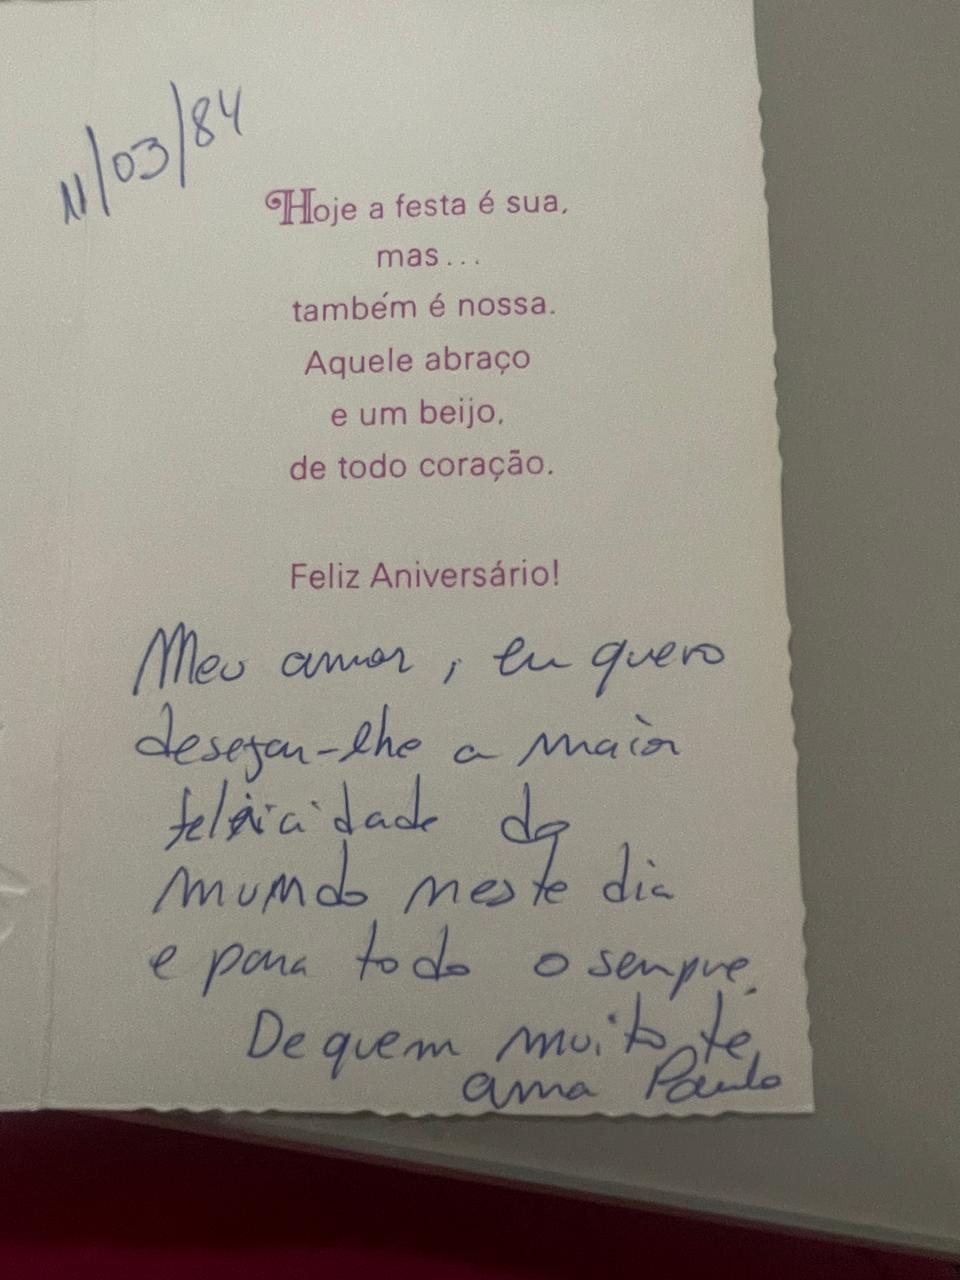 11/03/84
Hoje a festa é sua,
mas...
também é nossa.
Aquele abraço
e um beijo,
de todo coração.
Feliz Aniversário!
Meu amor, eu quero
desejar-lhe a maior
felicidade do
mundo neste dia
e para todo o sempre.
De quem muito te
ama Paulo